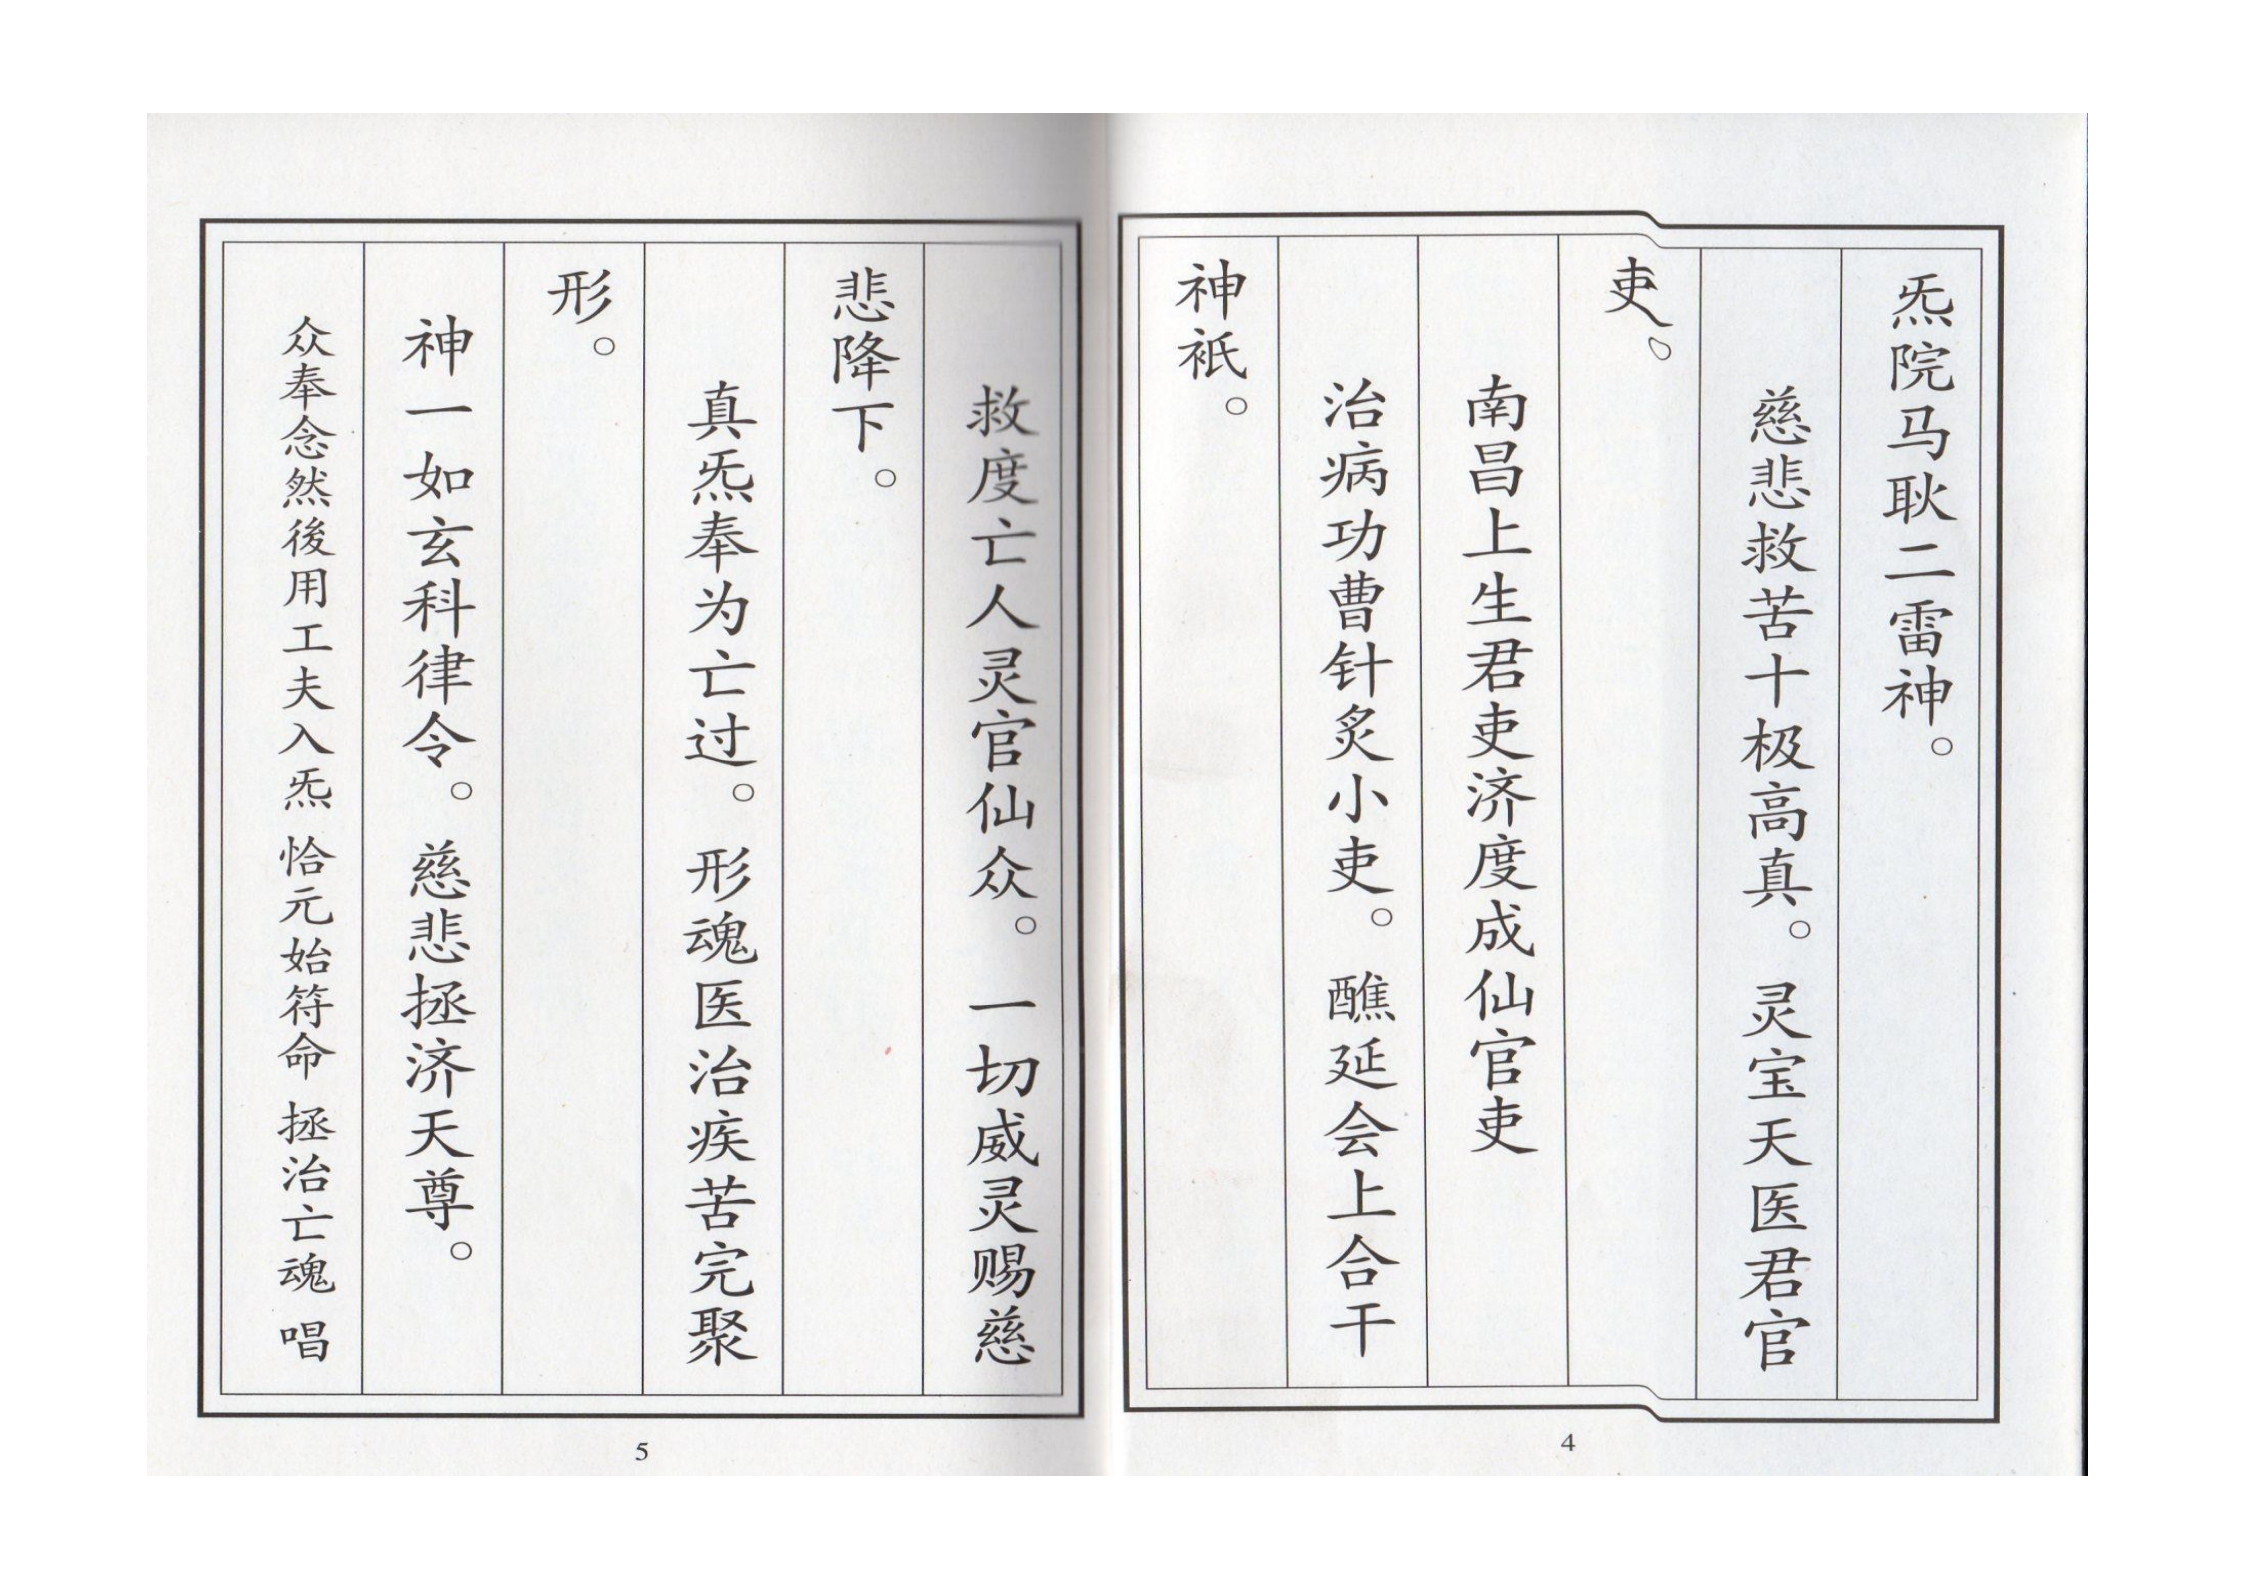 炁院马耿二雷神。
慈悲救苦十极高真。灵宝天医君官
吏。
南昌上生君吏济度成仙官吏
治病功曹针炙小吏。醮延会上合干
神衹。
4
救度亡人灵官仙众。一切威灵赐慈
悲降下。
真炁奉为亡过。形魂医治疾苦完聚
形。
神一如玄科律令。慈悲拯济天尊。
众奉念然後用工夫入炁 恰元始符命 拯治亡魂 唱
5